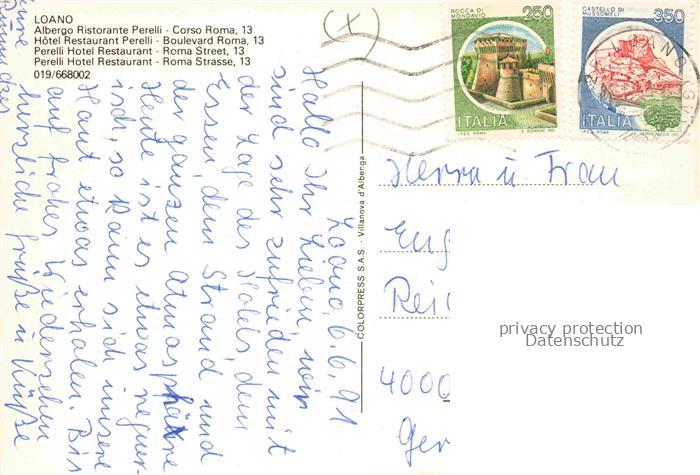 LOANO
Albergo Ristorante Perelli - Corso Roma, 13
Hôtel Restaurant Perelli - Boulevard Roma, 13
Perelli Hotel Restaurant - Roma Street, 13
Perelli Hotel Restaurant - Roma Strasse, 13
019/668002
ROCCA DI MONDAVIO
250
ITALIA
CASTELLO DI MUSSOMELI
350
ITALIA
COLORPRESS S.A.S. - Villanova d'Albenga
Loano, 6.6.91
Hallo Ihr Lieben, wir
sind sehr zufrieden mit
der Lage des Hotels, dem
Essen, dem Strand und
der ganzen Atmosphäre
Heute ist es etwas regner-
isch, so kann sich unsere
Haut etwas erholen. Bis
auf frohes Wiedersehen
herzliche Grüße u. Küße
Eure
Herrn u. Frau
Eug
Rei
4000
Ger
privacy protection
Datenschutz